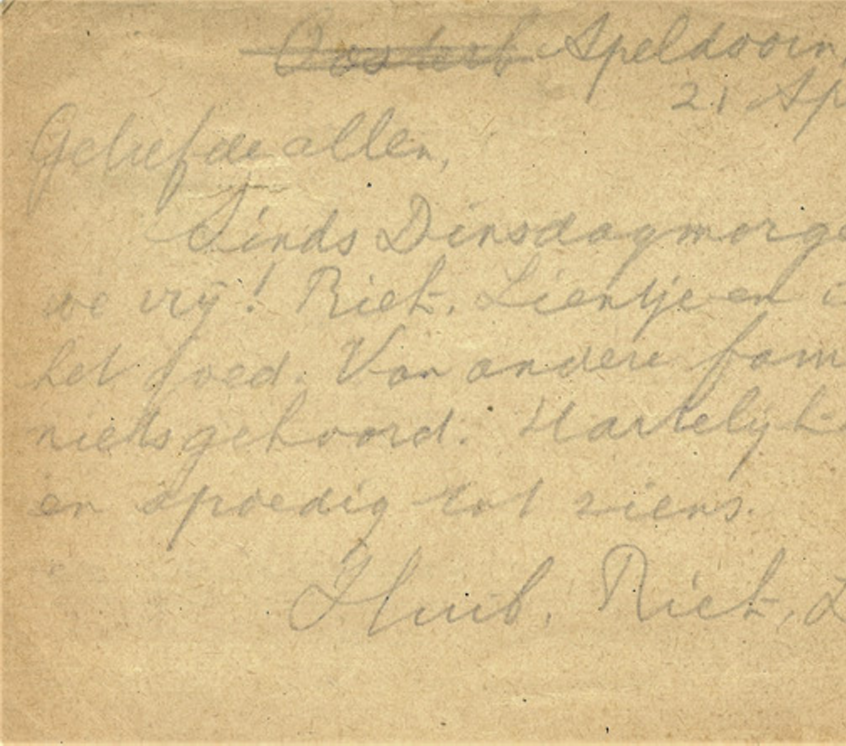 Oosterb Apeldoorn,
21 Ap
Geliefde allen,
Sinds Dinsdagmorge
we vrij! Riet, Lientje en i
het goed. Van andere fam
niets gehoord. Hartelijke
en spoedig tot ziens.
Huib, Riet, L